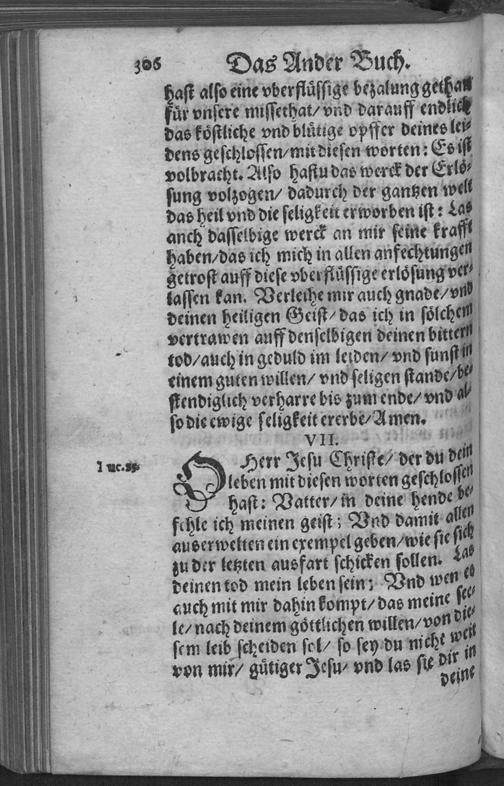 306 Das Ander Buch.
hast also eine vberflüssige bezalung gethan
für vnsere missethat/ vnd darauff endlich
das köstliche vnd blütige opffer deines lei-
dens geschlossen/ mit diesen worten: Es ist
volbracht. Also hastu das werck der Erlö-
sung volzogen/ dadurch der gantzen welt
das heil vnd die seligkeit erworben ist: Las
auch dasselbige werck an mir seine krafft
haben/ das ich mich in allen anfechtungen
getrost auff diese vberflüssige erlösung ver-
lassen kan. Verleihe mir auch gnade/ vnd
deinen heiligen Geist/ das ich in sölchem
vertrawen auff denselbigen deinen bittern
tod/ auch in geduld im leiden/ vnd sunst in
einem guten willen/ vnd seligen stande/ be-
stendiglich verharre bis zum ende/ vnd al-
so die ewige seligkeit ererbe/ Amen.
VII.
Luc. 23. O Herr Jesu Christe/ der du dein
leben mit diesen worten geschlossen
hast: Vatter/ in deine hende be-
fehle ich meinen geist; Vnd damit allen
auserwelten ein exempel geben/ wie sie sich
zu der letzten ausfart schicken sollen. Las
deinen tod mein leben sein; Vnd wen es
auch mit mir dahin kompt/ das meine see-
le/ nach deinem göttlichen willen/ von die-
sem leib scheiden sol/ so sey du nicht weit
von mir/ gütiger Jesu/ vnd las sie dir in
deine